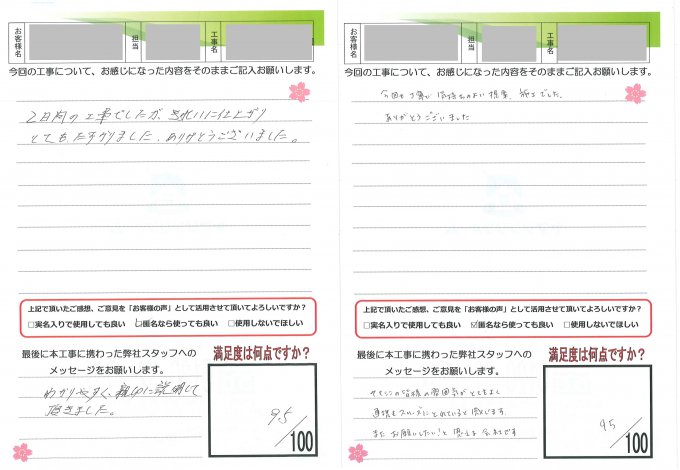 お客様名
担当
工事名
今回の工事について、お感じになった内容をそのままご記入お願いします。
2日間の工事でしたが、きれいに仕上がり
とてもたすかりました。ありがとうございました。
上記で頂いたご感想、ご意見を「お客様の声」として活用させて頂いてよろしいですか？
□実名入りで使用しても良い ☑匿名なら使っても良い □使用しないでほしい
最後に本工事に携わった弊社スタッフへの
メッセージをお願いします。
わかりやすく、親切に説明して
頂きました。
満足度は何点ですか？
95
/100
お客様名
担当
工事名
今回の工事について、お感じになった内容をそのままご記入お願いします。
今回も丁寧に気持ちのよい提案、施工でした。
ありがとうございました
上記で頂いたご感想、ご意見を「お客様の声」として活用させて頂いてよろしいですか？
□実名入りで使用しても良い ☑匿名なら使っても良い □使用しないでほしい
最後に本工事に携わった弊社スタッフへの
メッセージをお願いします。
の皆様の雰囲気がとてもよく
連携もスムーズにとれていると感じます。
またお願いしたい！と思える会社です
満足度は何点ですか？
95
/100